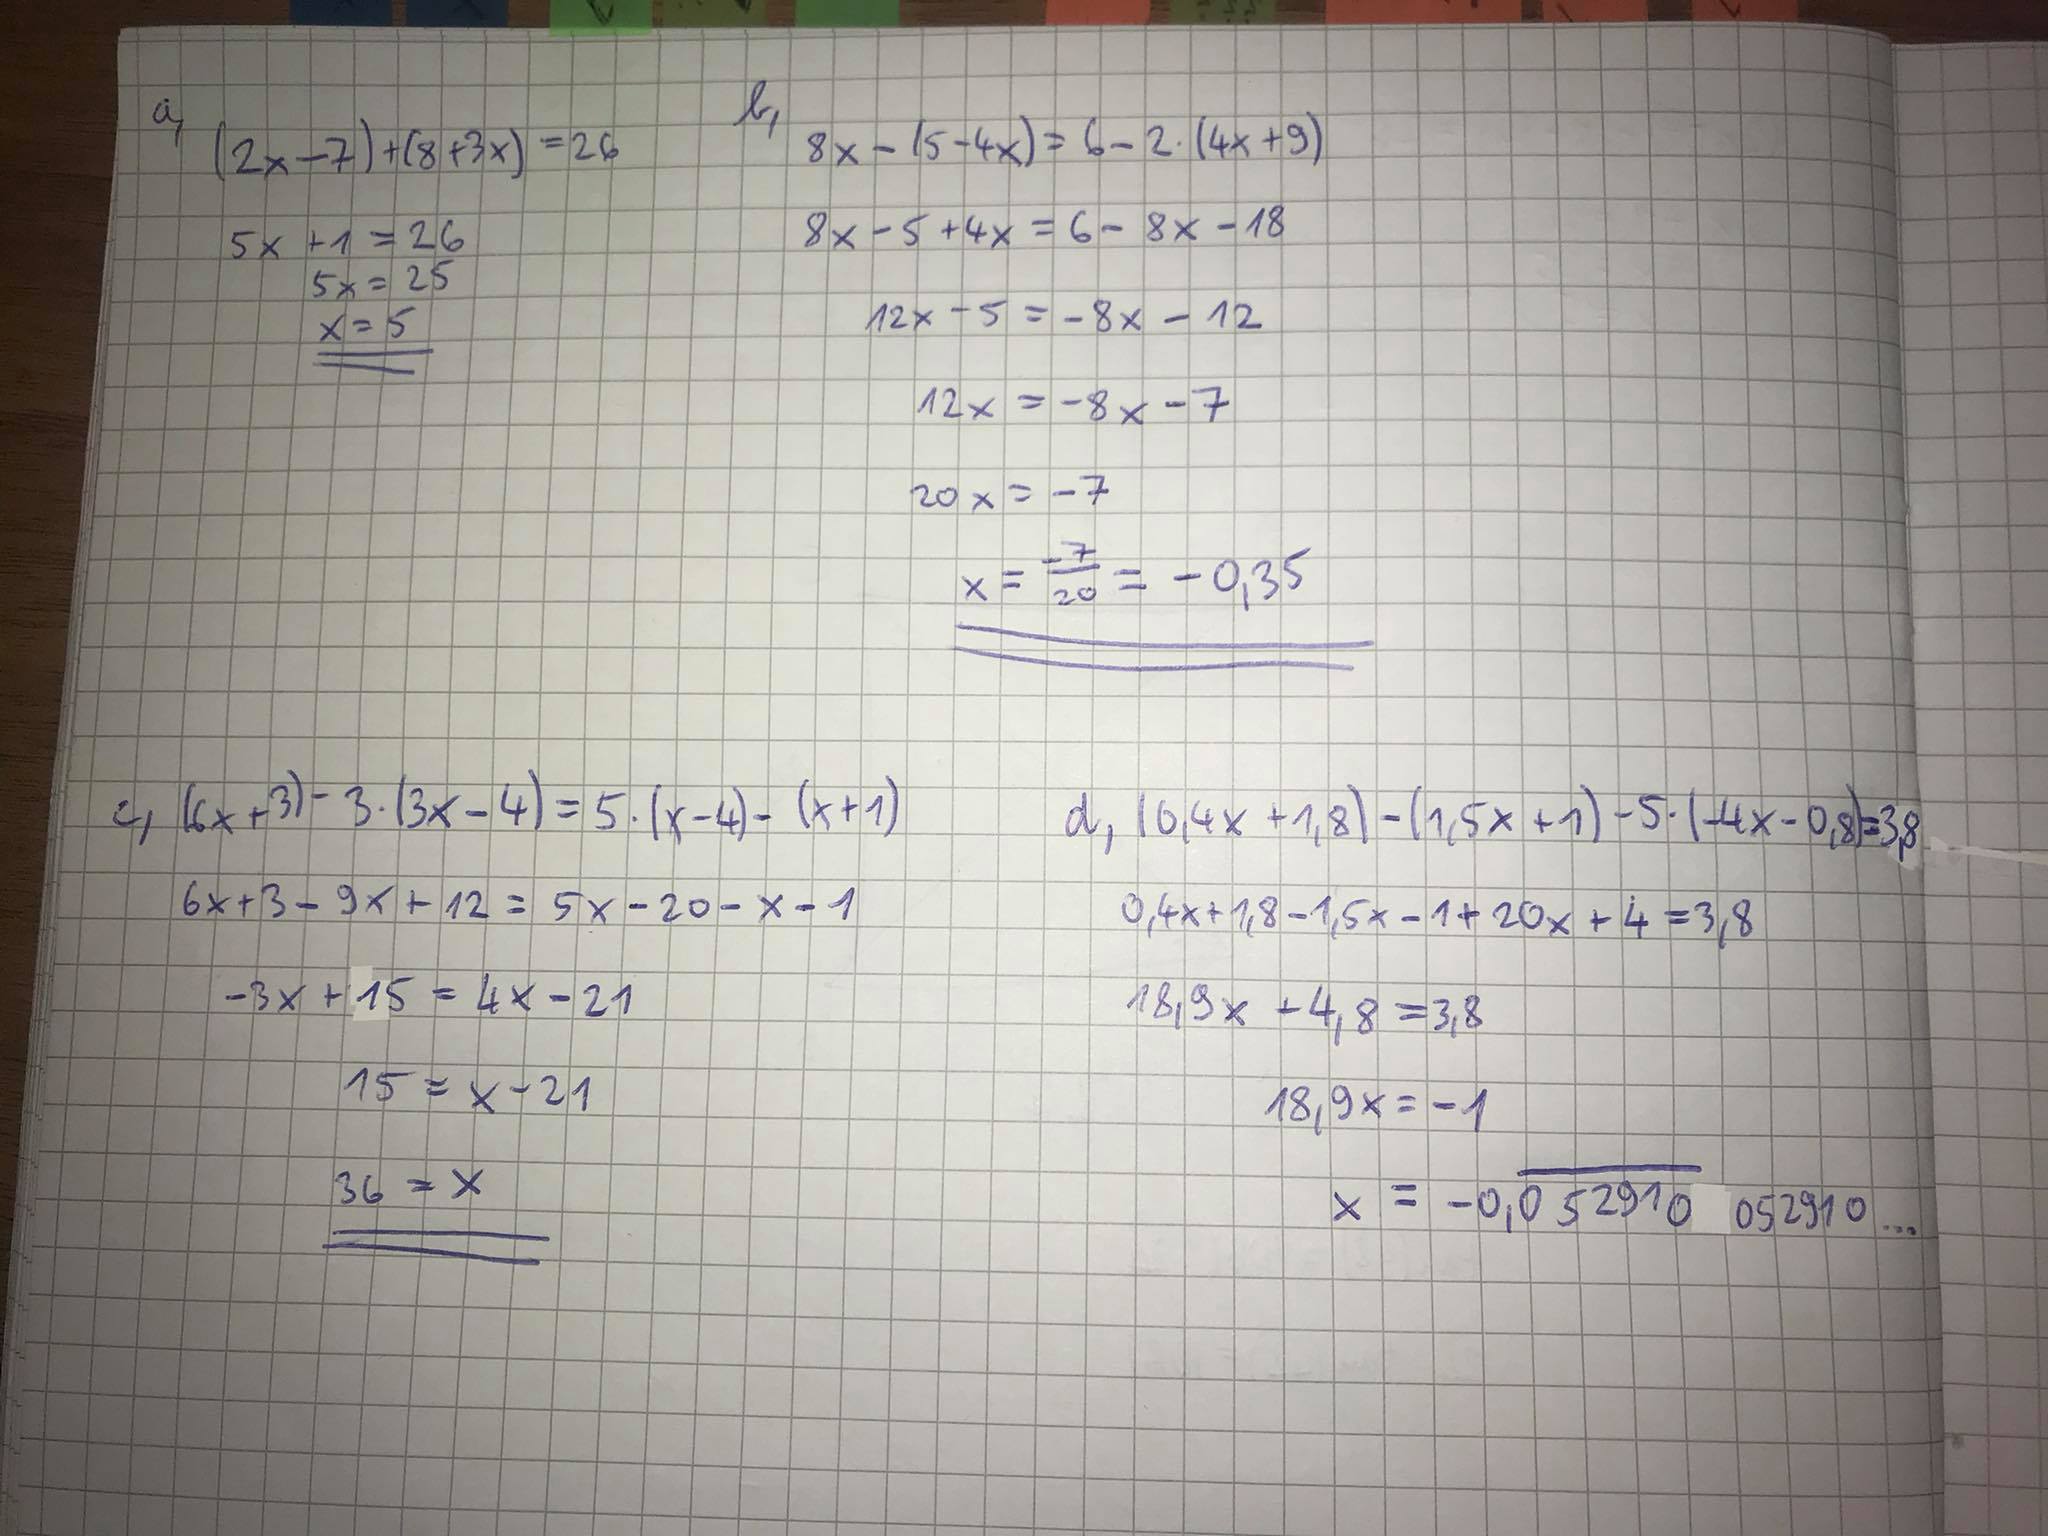 a, (2x-7)+(8+3x)=26
5x+1=26
5x=25
x=5
b, 8x-(5-4x)=6-2·(4x+9)
8x-5+4x=6-8x-18
12x-5=-8x-12
12x=-8x-7
20x=-7
x=-7/20=-0,35
c, (6x+3)-3·(3x-4)=5·(x-4)-(x+1)
6x+3-9x+12=5x-20-x-1
-3x+15=4x-21
15=x-21
36=x
d, (0,4x+1,8)-(1,5x+1)-5·(-4x-0,8)=3,8
0,4x+1,8-1,5x-1+20x+4=3,8
18,9x+4,8=3,8
18,9x=-1
x=-0,052910 052910...